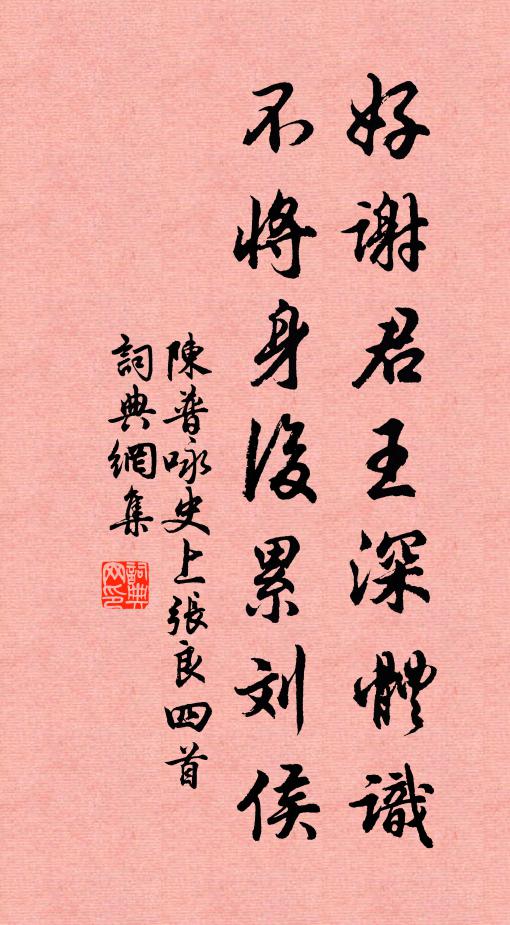 好謝君王深體識
不將身後累刘侯
陳普咏史上張良四首
詞典網集
詞典
网印